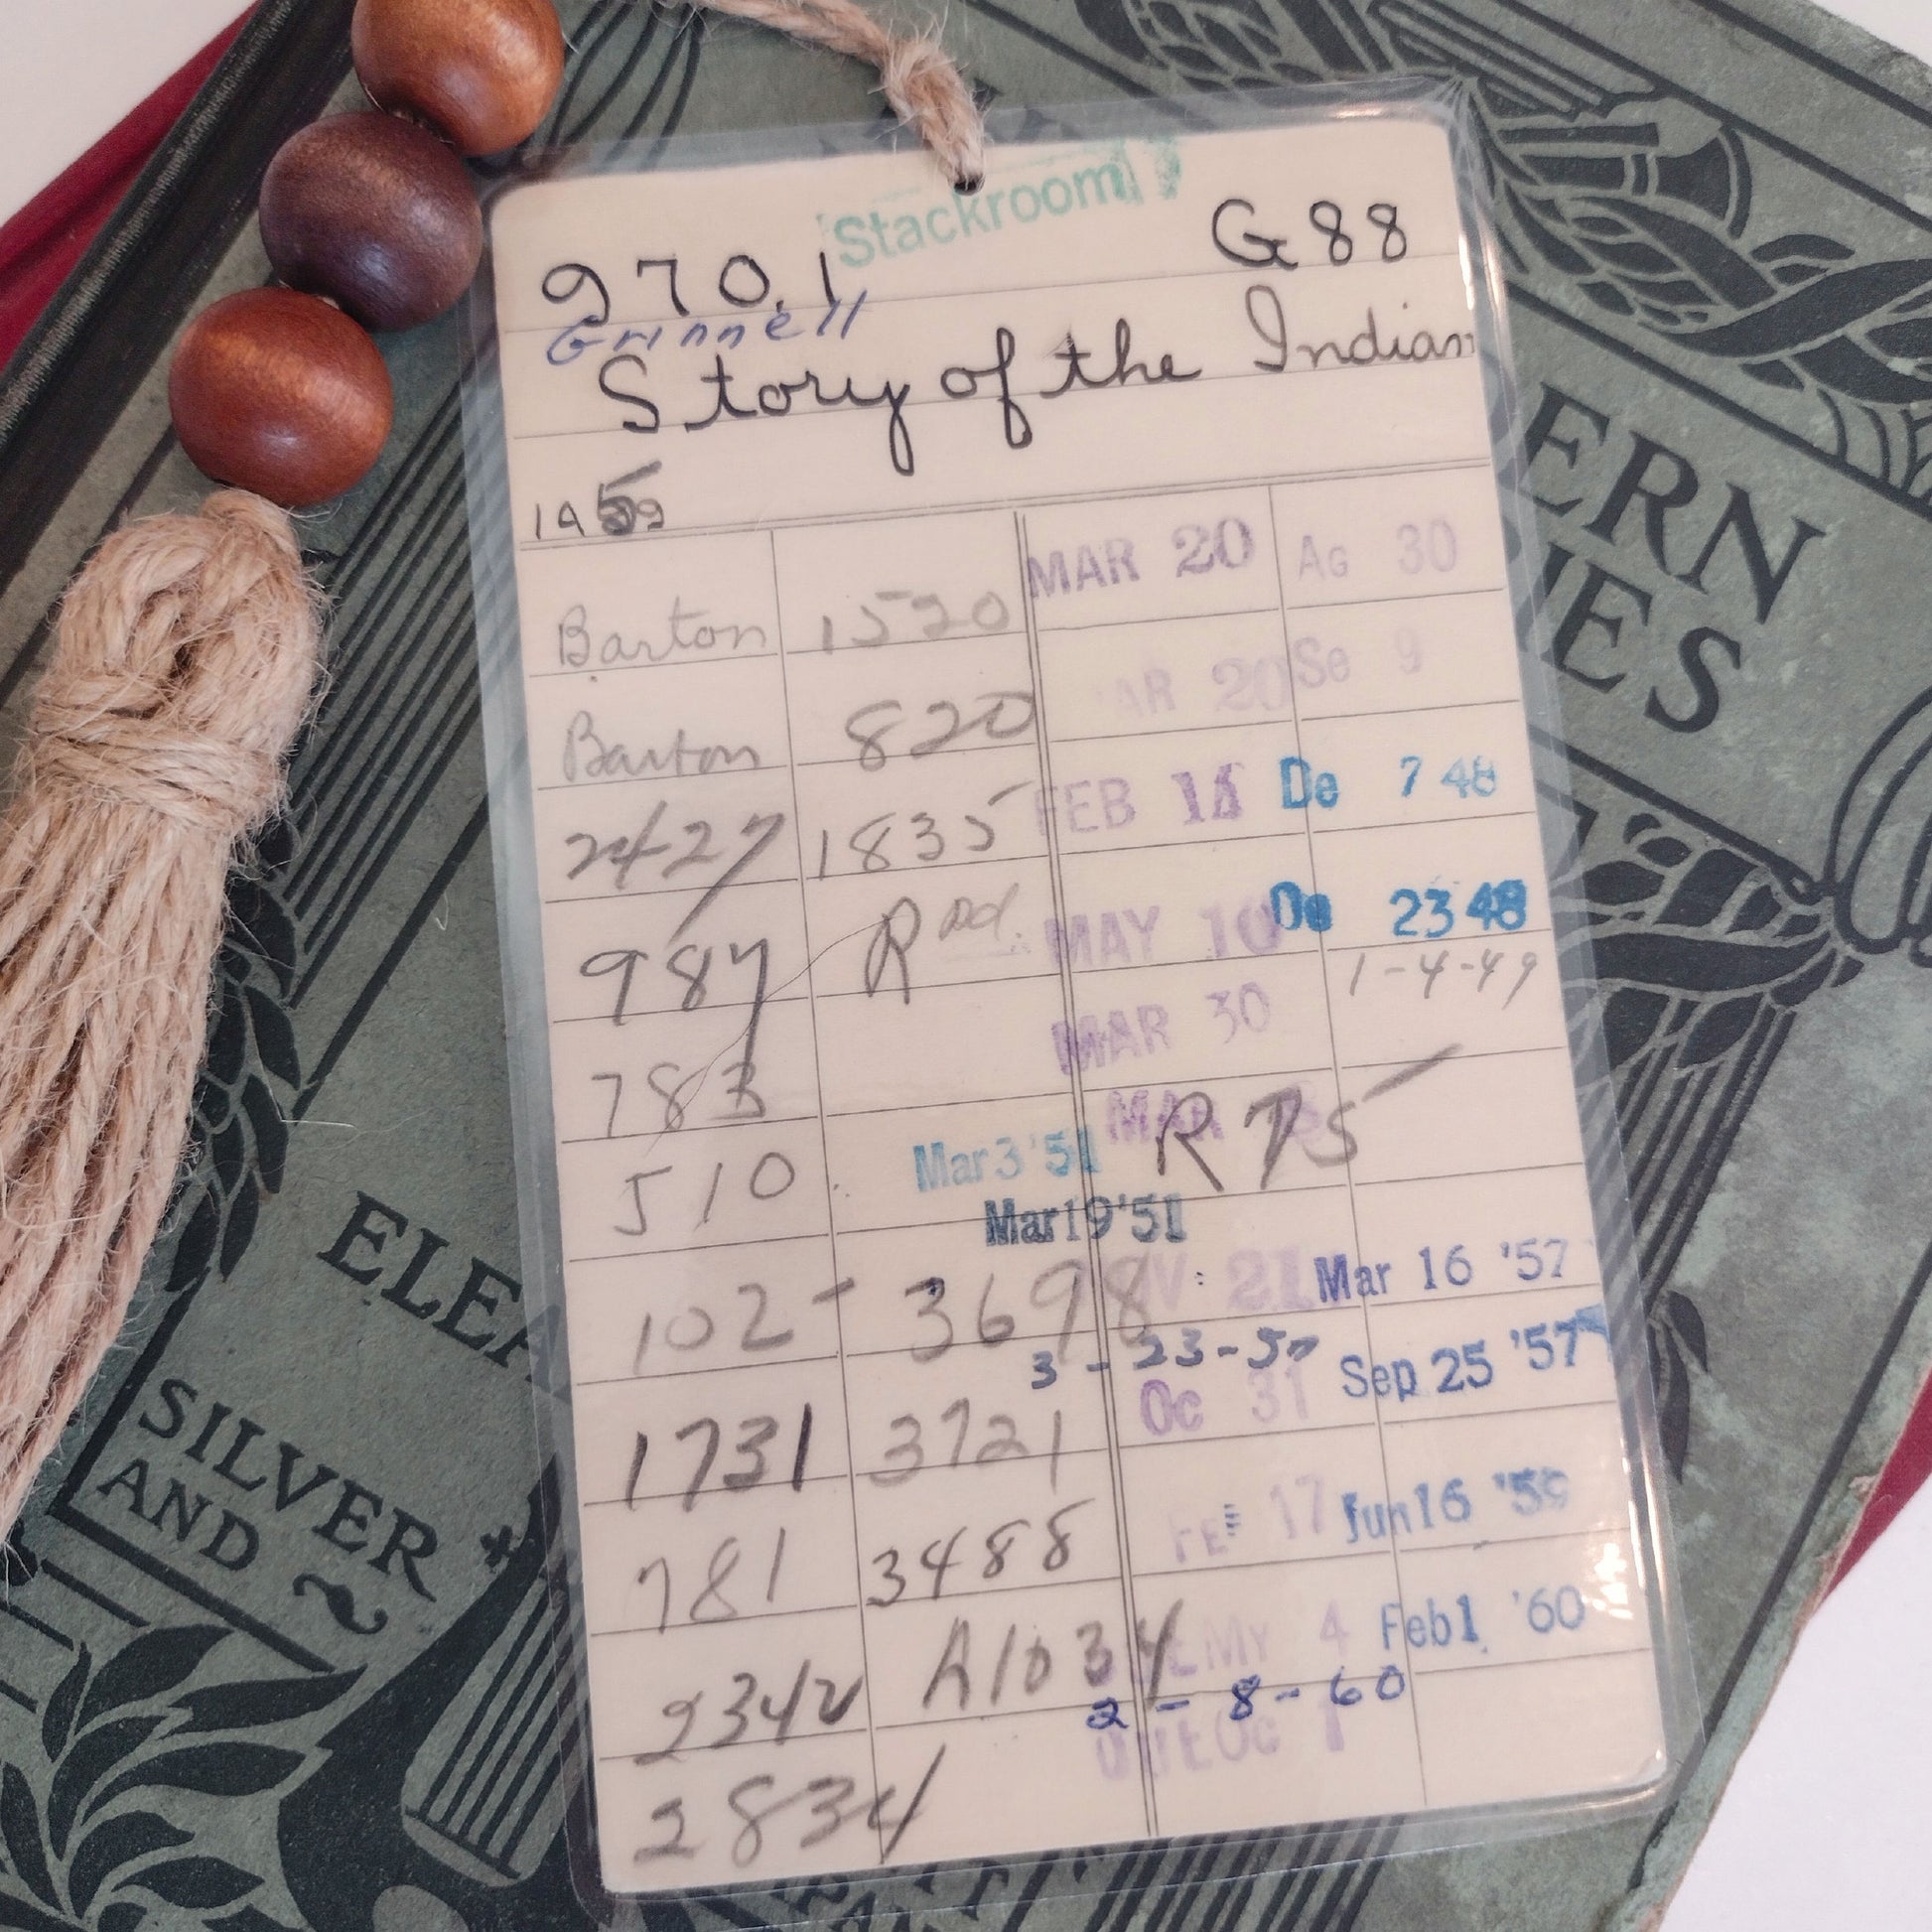 Stackroom
970.1 G88
Grinnell
Story of the Indian
Barton 1520 MAR 20 Ag 30
Barton 820 AR 20 Se 9
2427 1835 FEB De 7 48
987 R MAY 10 De 23 48
1-4-49
783 MAR 30
510 Mar 3 '51 MAR R 75
Mar 19 '51
102 3698 21 Mar 16 '57
3-23-57
1731 3721 Oc 31 Sep 25 '57
781 3488 17 Jun 16 '59
2342 A1034 My 4 Feb 1 '60
2-8-60
2834 Oc 1
ERN
IES
ELEA
SILVER
AND